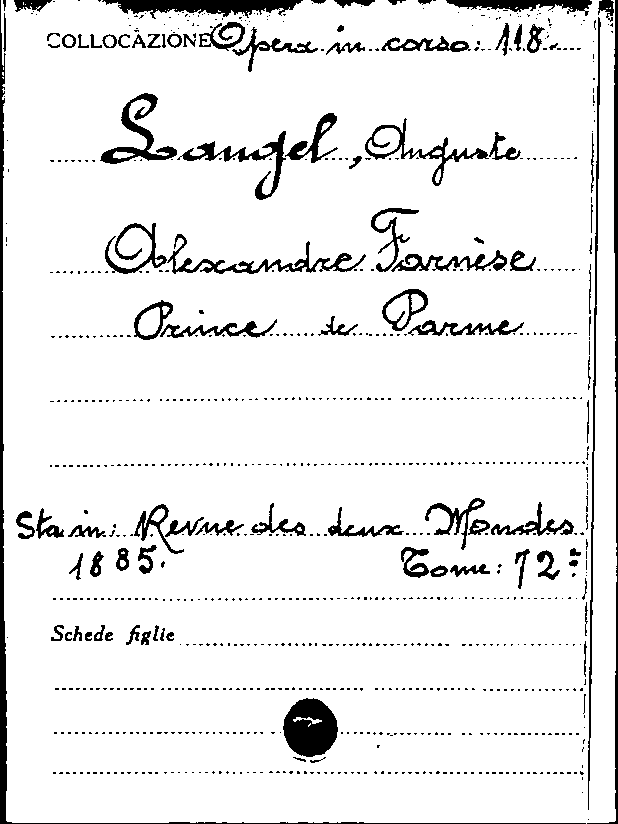 COLLOCAZIONE Opera in corso: 118.
Laugel, Auguste
Alexandre Farnèse
Prince de Parme
Sta in: Revue des deux Mondes
1885. Tome: 72º
Schede figlie